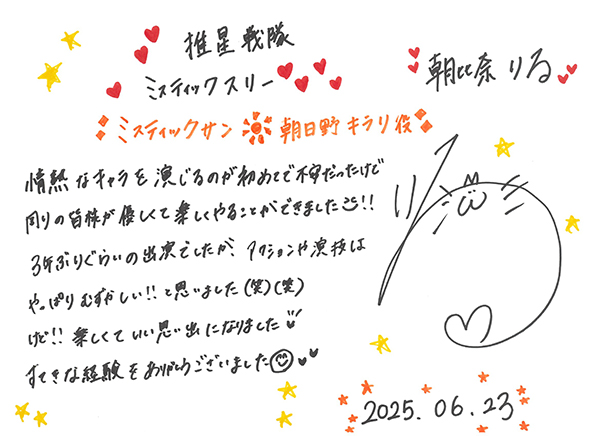 推星戦隊
ミスティックスリー
朝比奈りる
ミスティックサン 朝日野キラリ役
情熱なキャラを演じるのが初めてで不安だったけど
周りの皆様が優しくて楽しくやることができました!!
3年ぶりぐらいの出演でしたが、アクションや演技は
やっぱりむずかしい!!と思いました(笑)(笑)
けど!!楽しくていい思い出になりました
すてきな経験をありがとうございました
2025.06.23